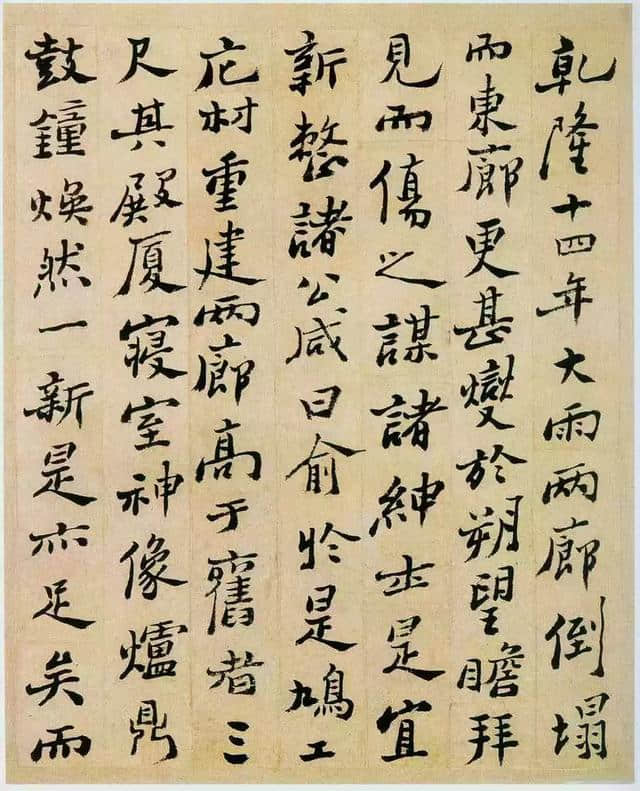 乾隆十四年大雨兩廊倒塌
而東廊更甚燮於朔望瞻拜
見而傷之謀諸紳士是宜
新整諸公咸曰俞於是鳩工
庀材重建兩廊高于舊者三
尺其殿厦寝室神像爐鼎
鼓鐘煥然一新是亦足矣而